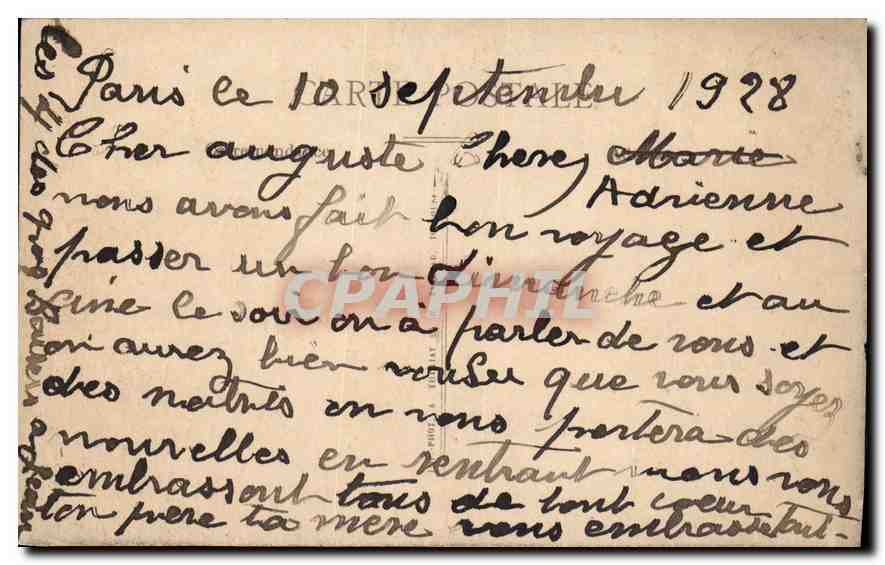 Paris le 10 septembre 1928
CARTE POSTALE
Correspondance
Cher auguste Chere Marie
Adrienne
nous avons fait bon voyage et
passer un bon dimanche et au
sine le soir on à parler de vous et
on aurez bien voulu que vous soyez
des notres on vous portera des
nouvelles en rentrant nous vous
embrassont tous de tout coeur
ton père ta mère vous embrasse tout-
les 4 des gros baisers a
PHOT.
CPAPHIL